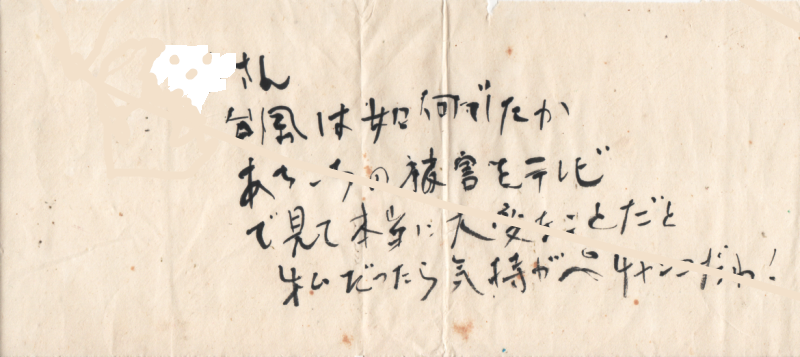 さん
台風は如何でしたか
あちこちの被害をテレビ
で見て本当に大変なことだと
私だったら気持がペチャンコだわ!